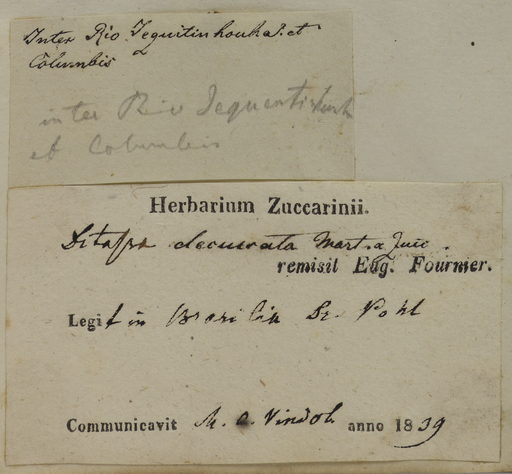 Inter Rio Jequitinhonha et
Columbis
inter Rio
et Columbis
Herbarium Zuccarinii.
Ditassa decussata Mart. & Zucc.
remisit Eug. Fournier.
Legit in Brasilia Dr Pohl
Communicavit M. C. Vindob anno 1839